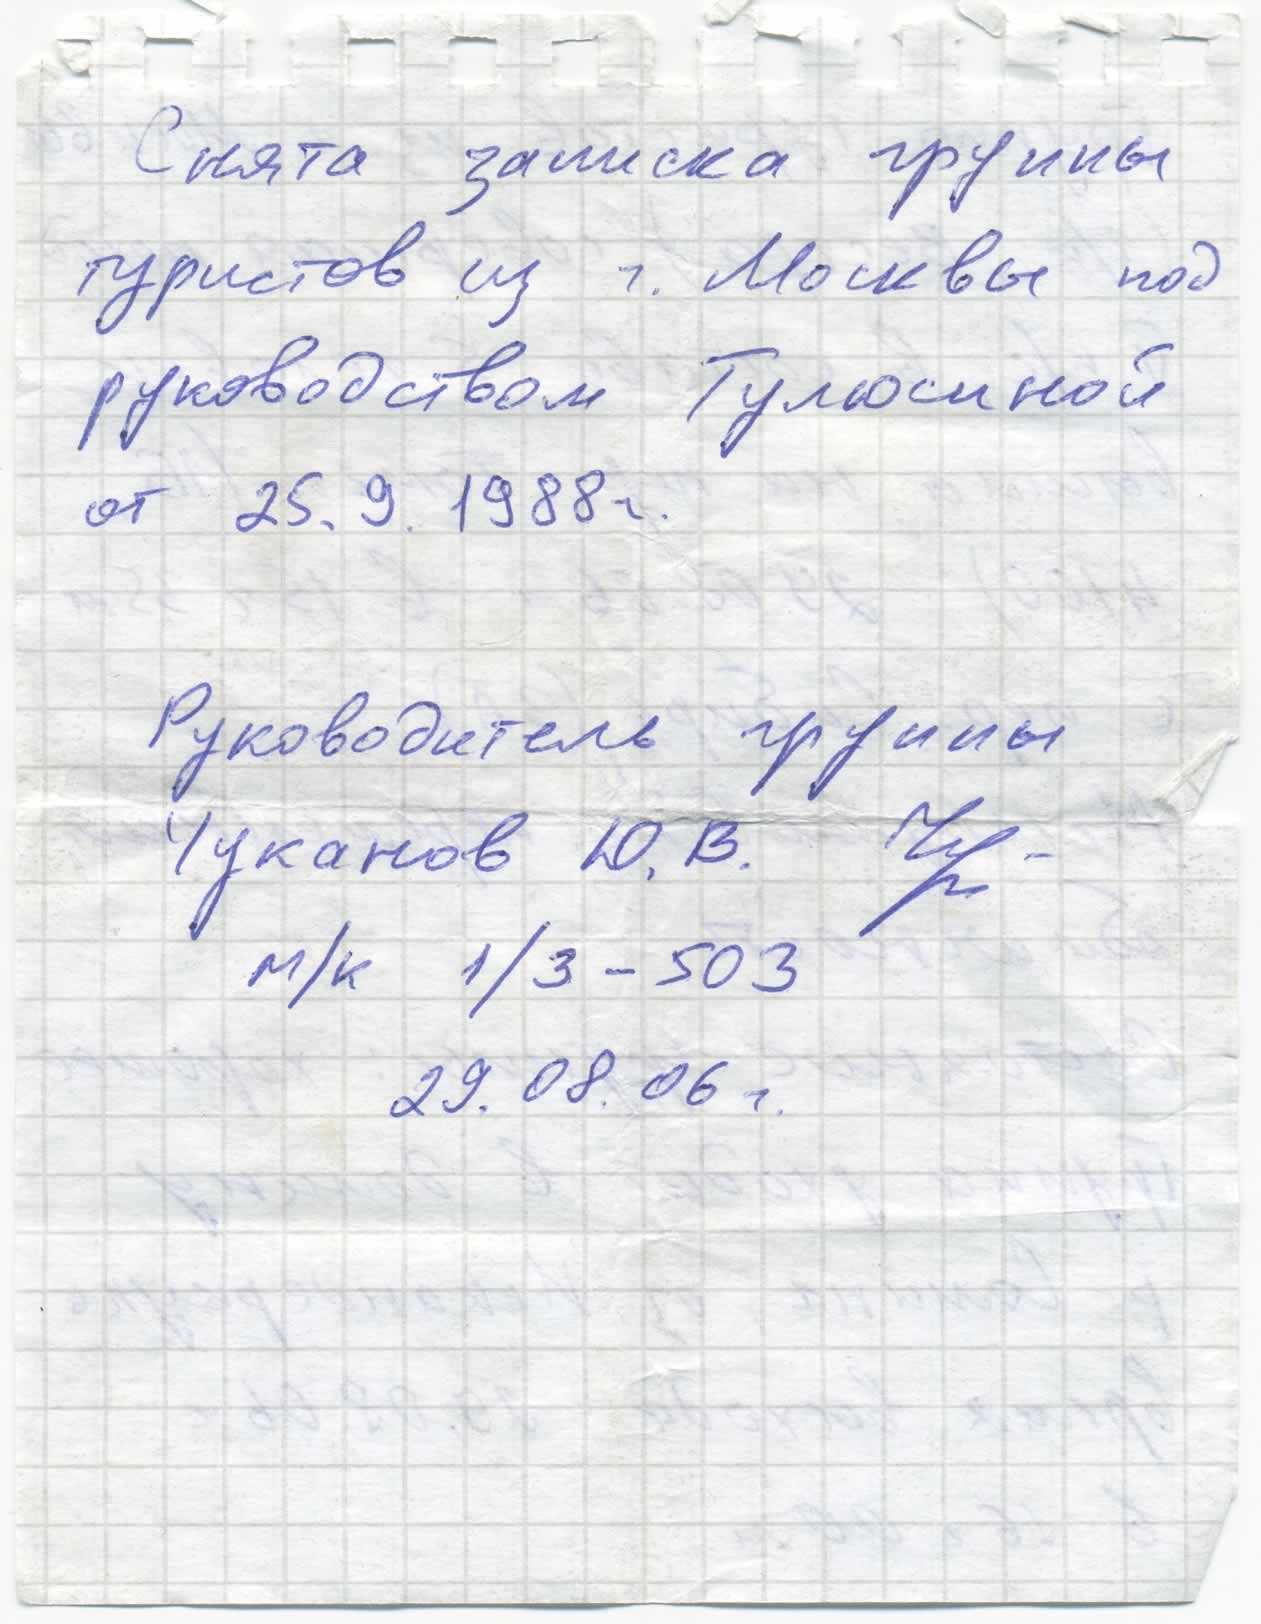 Снята записка группы
туристов из г. Москвы под
руководством Тулюсиной
от 25.9.1988г.
Руководитель группы
Чуканов Ю.В.
м/к 1/3-503
29.08.06 г.